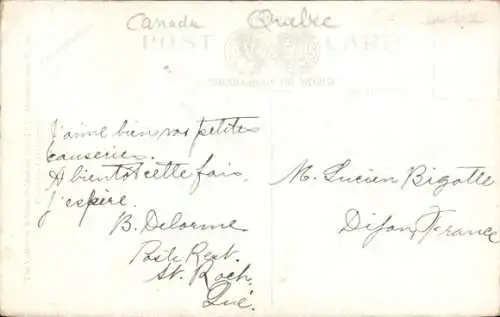 Canada Quebec
POST CARD
THROUGHOUT THE WORLD
J'aime bien vos petites
causeries.
A bientot cette fois,
j'espère.
B. Delorme
Poste Rest.
St. Roch
Qué.
M. Lucien Bigolle
Dijon, France